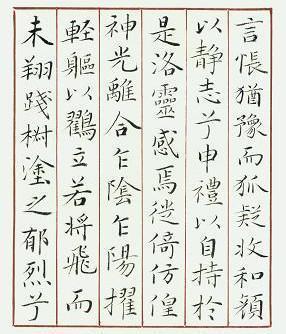 言悵猶豫而狐疑收和顏
以静志兮申禮以自持於
是洛靈感焉徙倚仿偟
神光離合乍陰乍陽擢
輕軀以鶴立若将飛而
未翔踐椒塗之郁烈兮